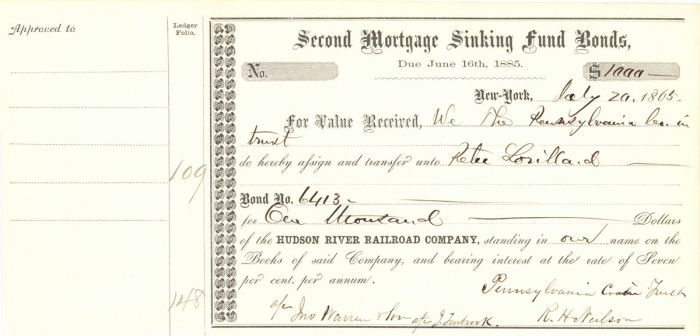 Approved to
Ledger Folio.
109
148
Second Mortgage Sinking Fund Bonds,
Due June 16th, 1885.
No.
$1000
New-York, July 20, 1865
For Value Received, We the Pennsylvania Co. in
trust
do hereby assign and transfer unto Peter Lorillard
Bond No. 6413
for One Thousand Dollars
of the HUDSON RIVER RAILROAD COMPANY, standing in our name on the
Books of said Company, and bearing interest at the rate of Seven
per cent. per annum.
Pennsylvania Co in Trust
a/c Jno Warren & Son a/c J.
R. H. Neilson